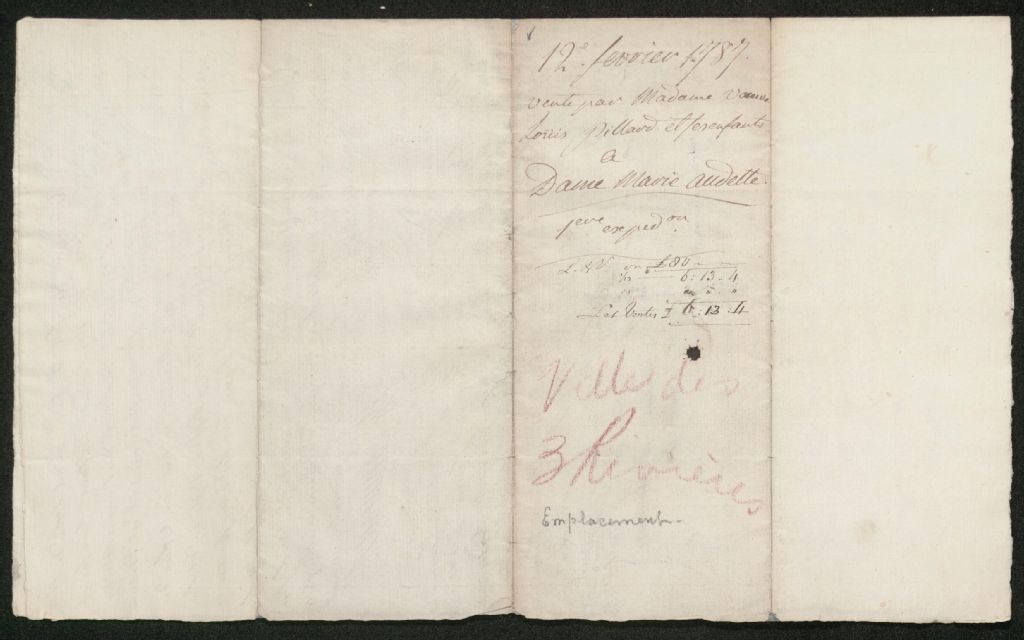 12e. fevrier 1787.
vente par Madame veuve
Louis Pillard et ses enfants
a
Dame Marie audette.
1ere exped.on
L. & V. £80
1/12 6 : 13 - 4
Lot Ventes £ 6 : 13 : 4
Ville des
3 Rivières
Emplacement.